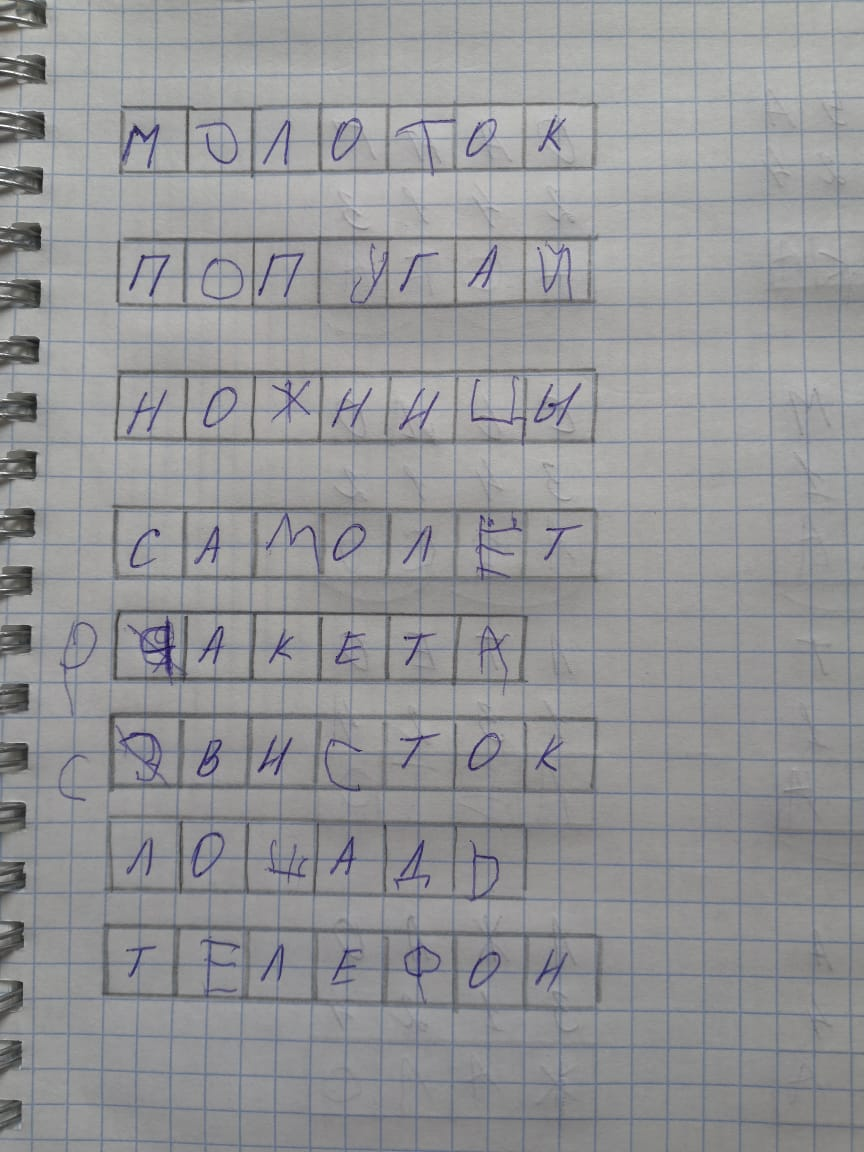 МОЛОТОК
ПОПУГАЙ
НОЖНИЦЫ
САМОЛЁТ
РАКЕТА
СВИСТОК
ЛОШАДЬ
ТЕЛЕФОН